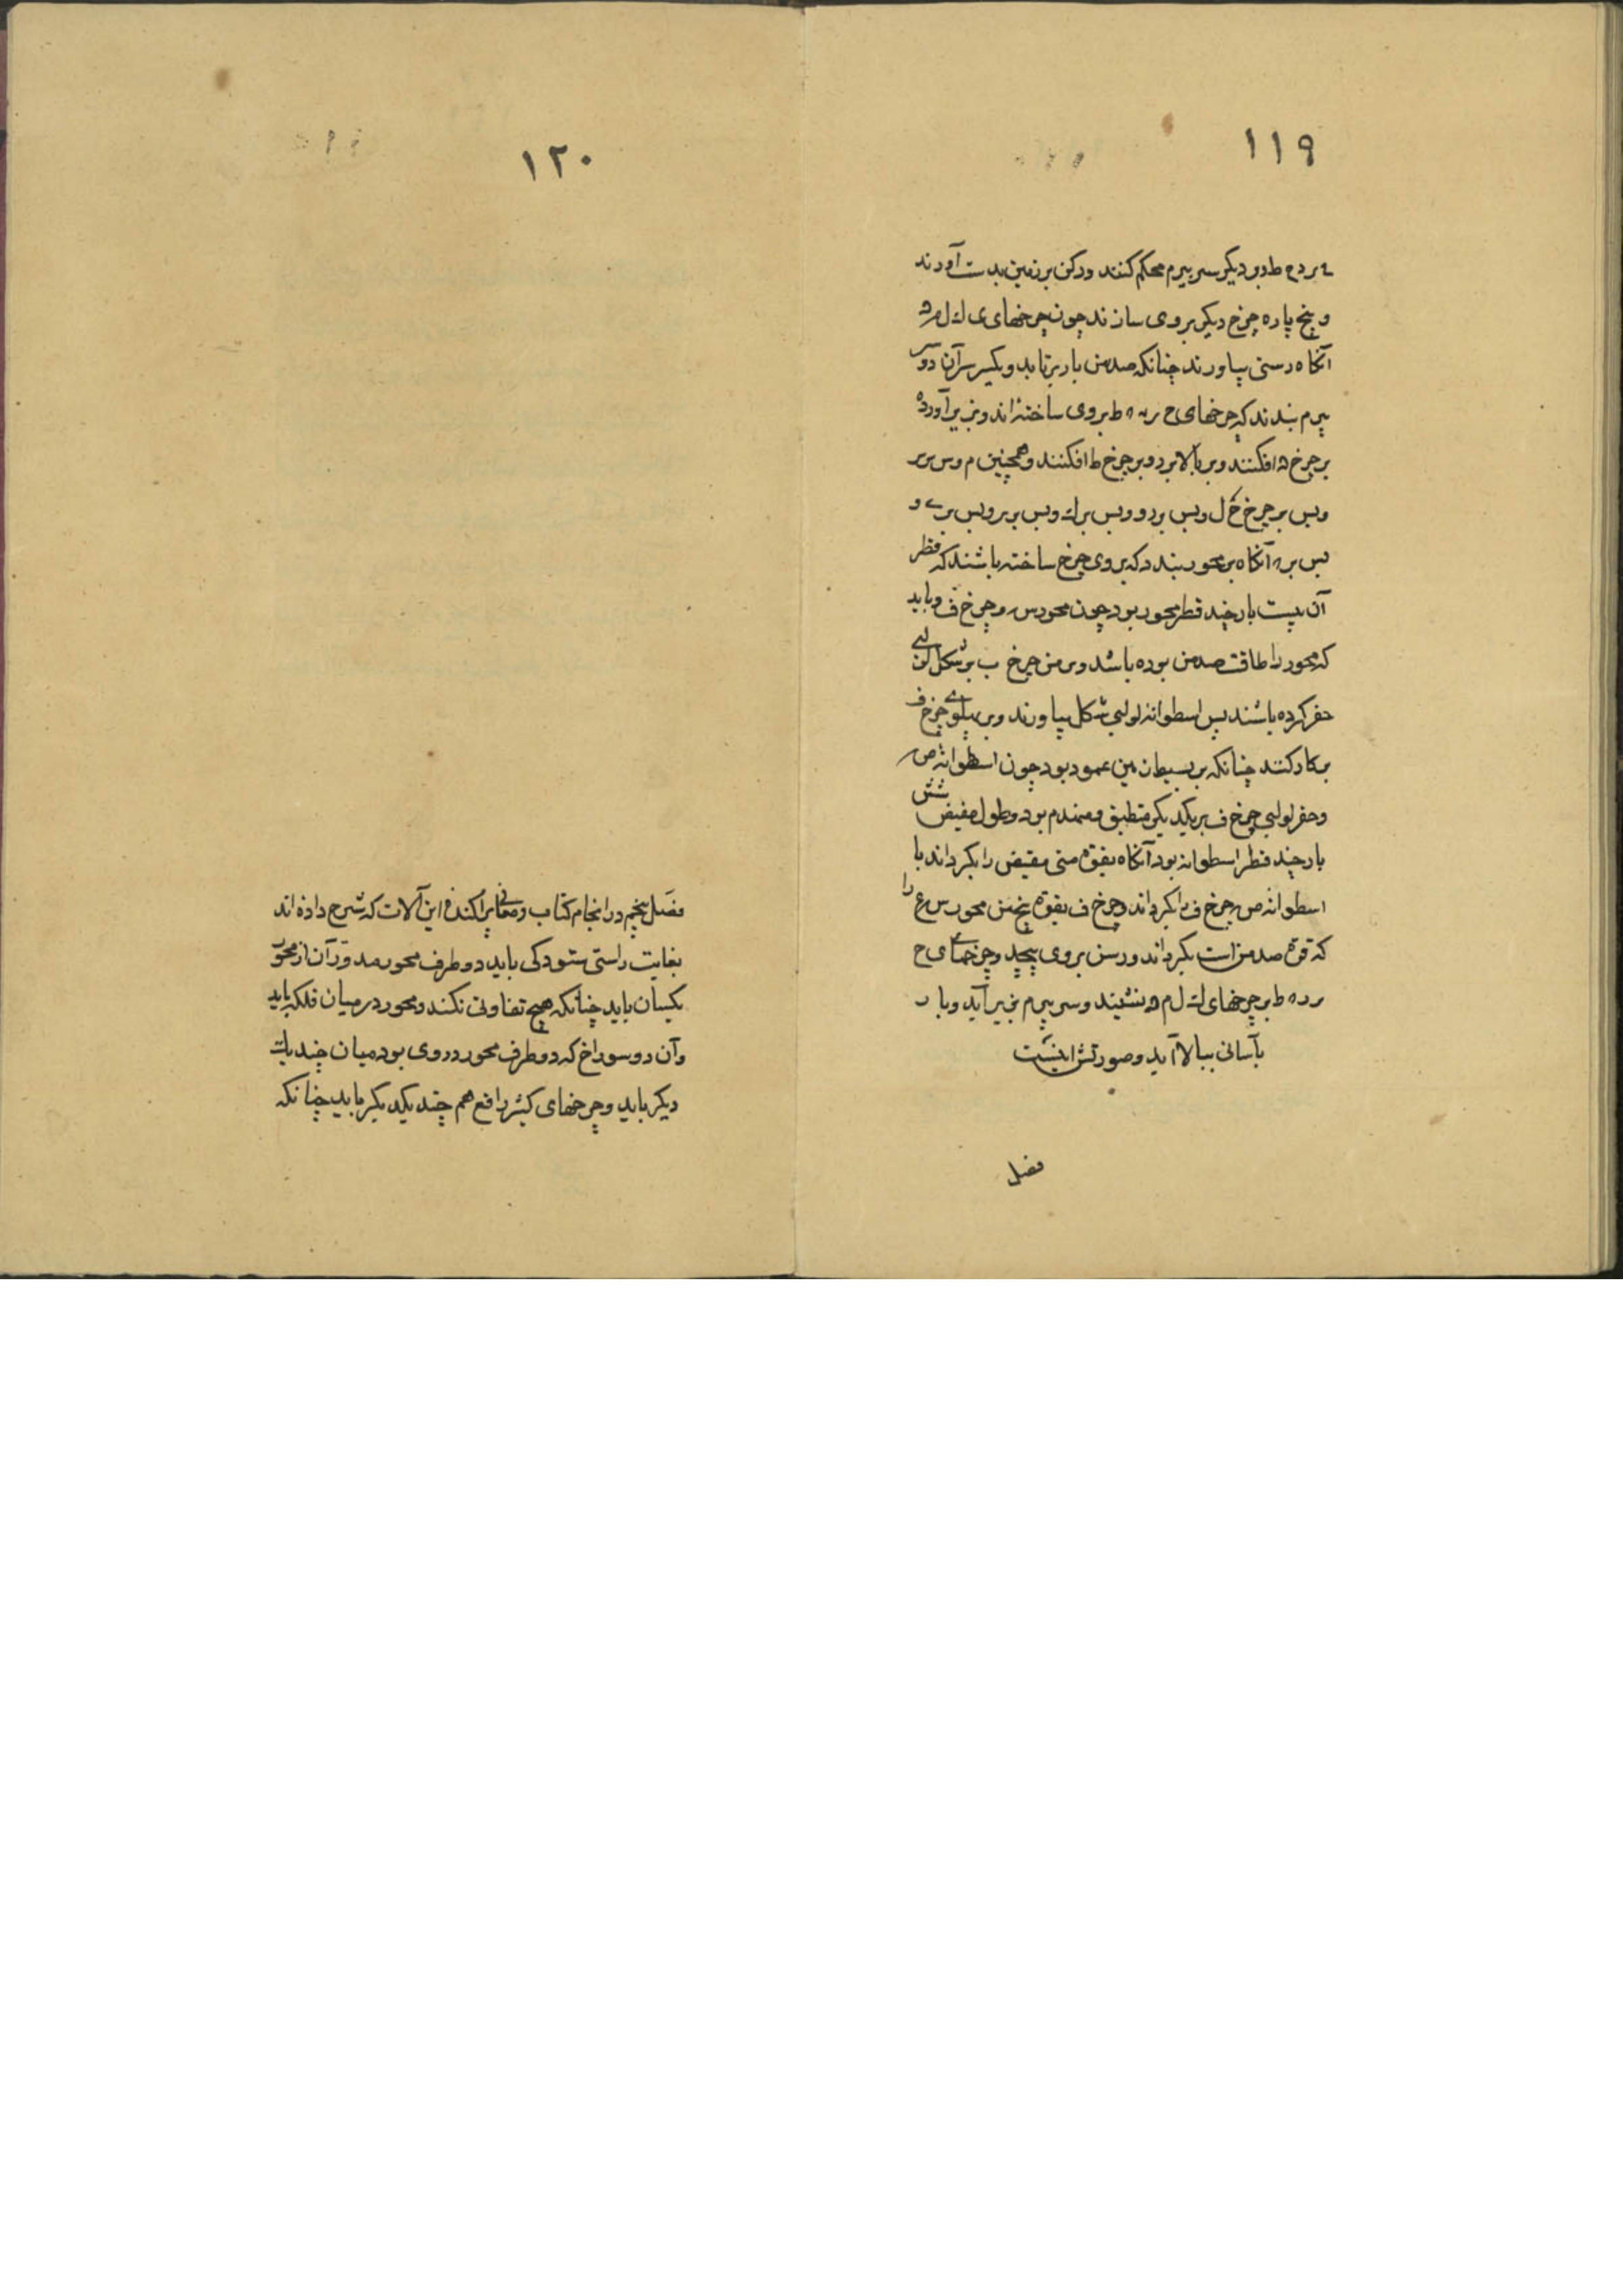 ١١٩
ء ر د ه ط و بر دیکر سر بیرم محکم کنند و رکن بر زمین بدست آورند
و پنج پاره چرخ دیکر بروی سازند چون چرخهای ی ك ل م ﻥ
آنکاه رسنی بیاورند چنانکه صد من بار برتابد و یکسر آن
بیرم بندند که چرخهای ح ر ه ط بروی ساخته‌اند و بزیر آورده
بر چرخ افکنند و ببالا برد و بر چرخ ط افکنند و همچنین
و پس بر چرخ ل و پس بر و و پس بر ك و پس بر ر و پس بر ے و
پس بر ه آنکاه بر محور بندد که بروی چرخ ساخته باشند که قطر
آن بیست بار چند قطر محور بود چون محور س و چرخ ف و باید
که محور را طاقت صد من بوده باشد و بر من چرخ ب بر شکل لولبی
حفر کرده باشند پس اسطوانه لولبی شکل بیاورند و بر پهلوے چرخ ف
بر کار کنند چنانکه بر بسیطان مین عمود بود چون اسطوانه ص
و حفر لولبی چرخ ف بر یکدیکر منطبق و مهندم بود و طول مقبض شش
بار چند قطر اسطوانه بود آنکاه بقوة منی مقبض را بکرداند با
اسطوانه ص چرخ ف را بکرداند و چرخ ف بقوة پنج من محور س ع را
که قوة صد من است بکرداند و رسن بروی پیچد و چرخهای ح
ر د ه ط بر چرخهای ك ل م ه نشیند و سر بیرم بزیر آید و بار
بآسانی ببالا آید و صورتش اینست
فصل
١٢٠
فصل پنجم در انجام کتاب و معانی پراکنده این آلات که شرح داده اند
بغایت راستی ستودکی باید دو طرف محور مدوّر آن از محور
یکسان باید چنانکه هیچ تفاوتی نکند و محور در میان فلکه باید
و آن دو سوراخ که دو طرف محور در وی بود میان چند یك
دیکر باید و چرخهای کثیر الرفع هم چند یکدیکر باید چنانکه